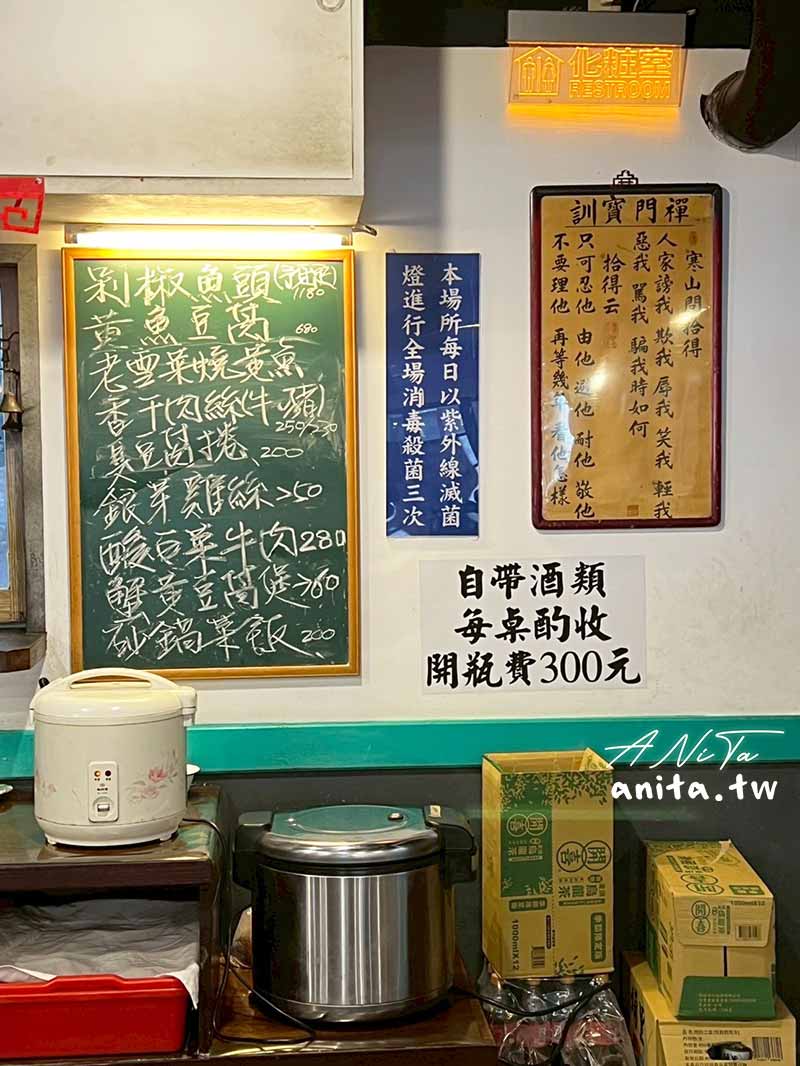 化粧室
RESTROOM
剁椒魚頭
1180
黃魚豆腐 680
老雪菜燒黃魚
香干肉絲(牛/豬)
250/230
臭豆腐捲 200
銀芽雞絲 250
酸白菜牛肉 280
蟹黃豆腐煲 360
砂鍋菜飯 200
本場所每日以紫外線滅菌
燈進行全場消毒殺菌三次
禪門寶訓
寒山問拾得
人家謗我 欺我 辱我 笑我 輕我
惡我 罵我 騙我時如何
拾得云
只可忍他 由他 避他 耐他 敬他
不要理他 再等幾年看他怎樣
自帶酒類
每桌酌收
開瓶費300元
ANiTa
anita.tw
開喜
烏龍茶
1000mlX12
開喜